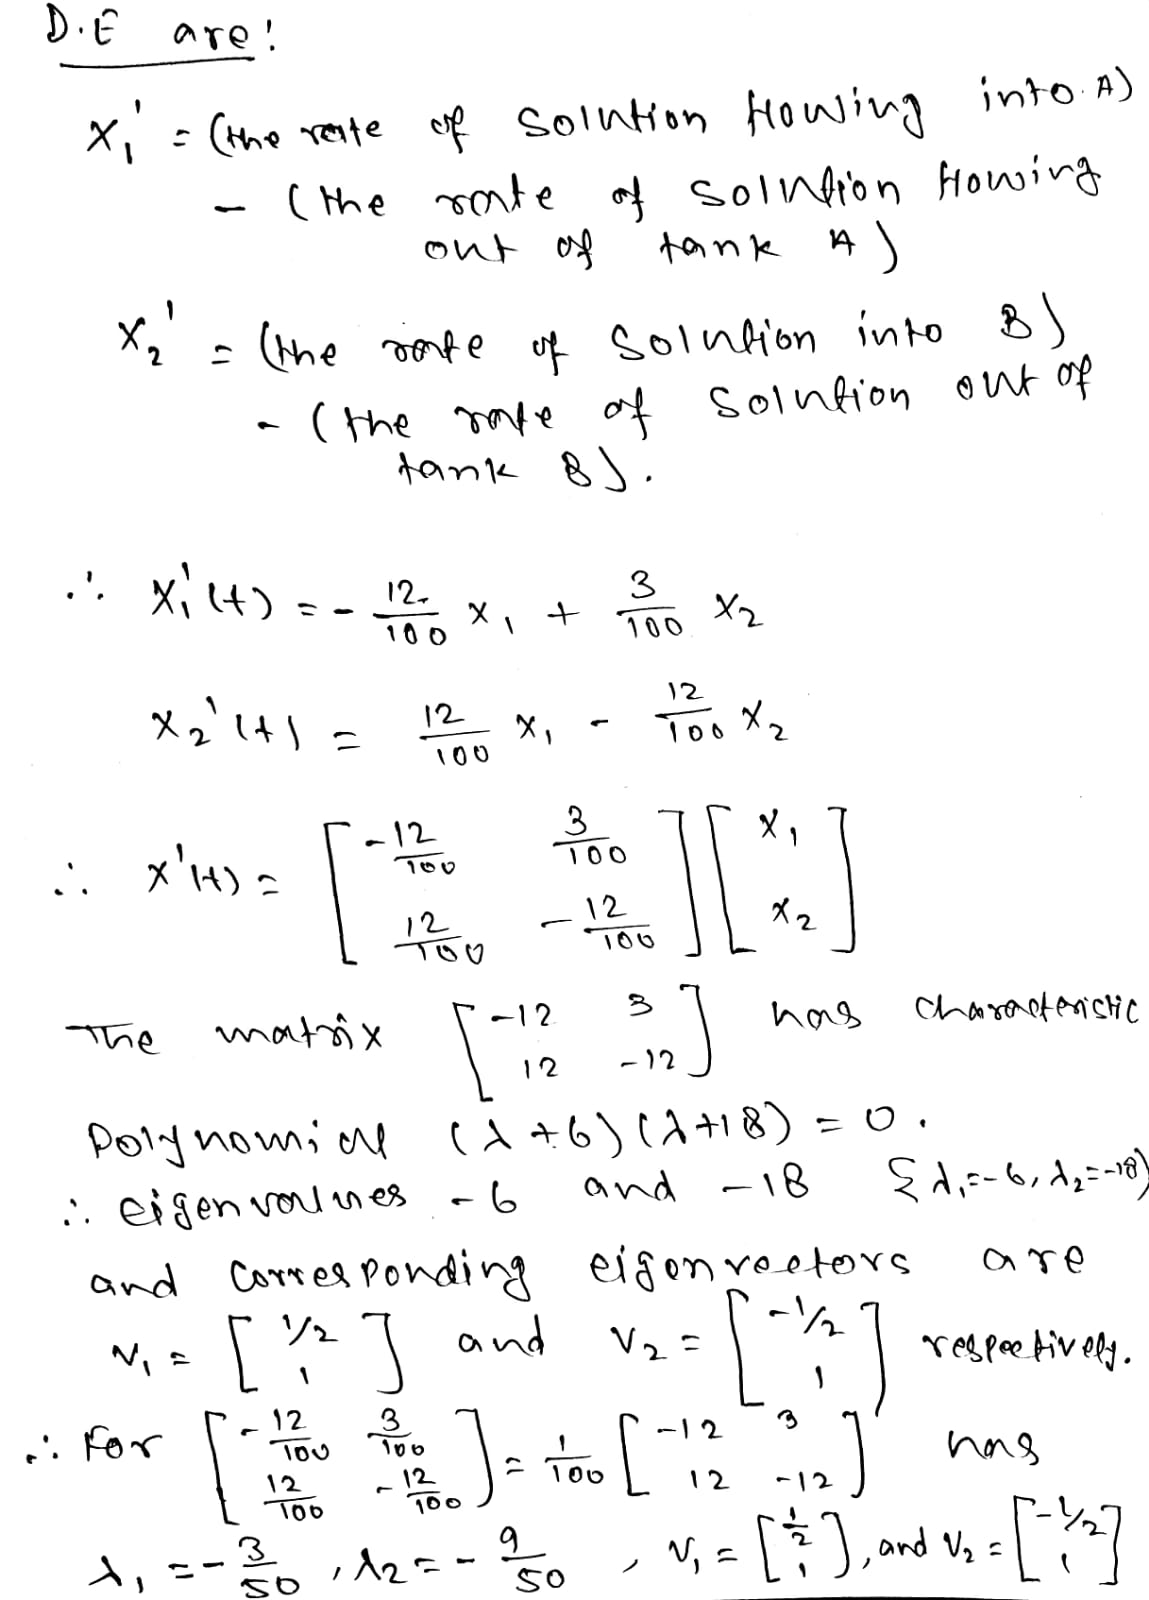 D.E are:
x₁' = (the rate of solution flowing into A)
- (the rate of solution flowing
out of tank A)
x₂' = (the rate of solution into B)
- (the rate of solution out of
tank B).
∴ x₁'(t) = - 12/100 x₁ + 3/100 x₂
x₂'(t) = 12/100 x₁ - 12/100 x₂
∴ x'(t) = [ -12/100 3/100 ; 12/100 -12/100 ] [ x₁ ; x₂ ]
The matrix [ -12 3 ; 12 -12 ] has characteristic
polynomial (λ+6)(λ+18) = 0.
∴ eigenvalues -6 and -18 {λ₁=-6, λ₂=-18)
and corresponding eigenvectors are
v₁ = [ 1/2 ; 1 ] and v₂ = [ -1/2 ; 1 ] respectively.
∴ For [ -12/100 3/100 ; 12/100 -12/100 ] = 1/100 [ -12 3 ; 12 -12 ] has
λ₁ = -3/50 , λ₂ = -9/50 , v₁ = [ 1/2 ; 1 ], and v₂ = [ -1/2 ; 1 ]